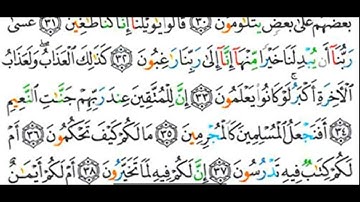 بَعْضُهُمْ عَلَىٰ بَعْضٍ يَتَلَٰوَمُونَ ﴿٣٠﴾ قَالُوا۟ يَٰوَيْلَنَآ إِنَّا كُنَّا طَٰغِينَ ﴿٣١﴾ عَسَىٰ
رَبُّنَآ أَن يُبْدِلَنَا خَيْرًا مِّنْهَآ إِنَّآ إِلَىٰ رَبِّنَا رَٰغِبُونَ ﴿٣٢﴾ كَذَٰلِكَ ٱلْعَذَابُ ۖ وَلَعَذَابُ
ٱلْءَاخِرَةِ أَكْبَرُ ۚ لَوْ كَانُوا۟ يَعْلَمُونَ ﴿٣٣﴾ إِنَّ لِلْمُتَّقِينَ عِندَ رَبِّهِمْ جَنَّٰتِ ٱلنَّعِيمِ
﴿٣٤﴾ أَفَنَجْعَلُ ٱلْمُسْلِمِينَ كَٱلْمُجْرِمِينَ ﴿٣٥﴾ مَا لَكُمْ كَيْفَ تَحْكُمُونَ ﴿٣٦﴾ أَمْ
لَكُمْ كِتَٰبٌ فِيهِ تَدْرُسُونَ ﴿٣٧﴾ إِنَّ لَكُمْ فِيهِ لَمَا تَخَيَّرُونَ ﴿٣٨﴾ أَمْ لَكُمْ أَيْمَٰنٌ